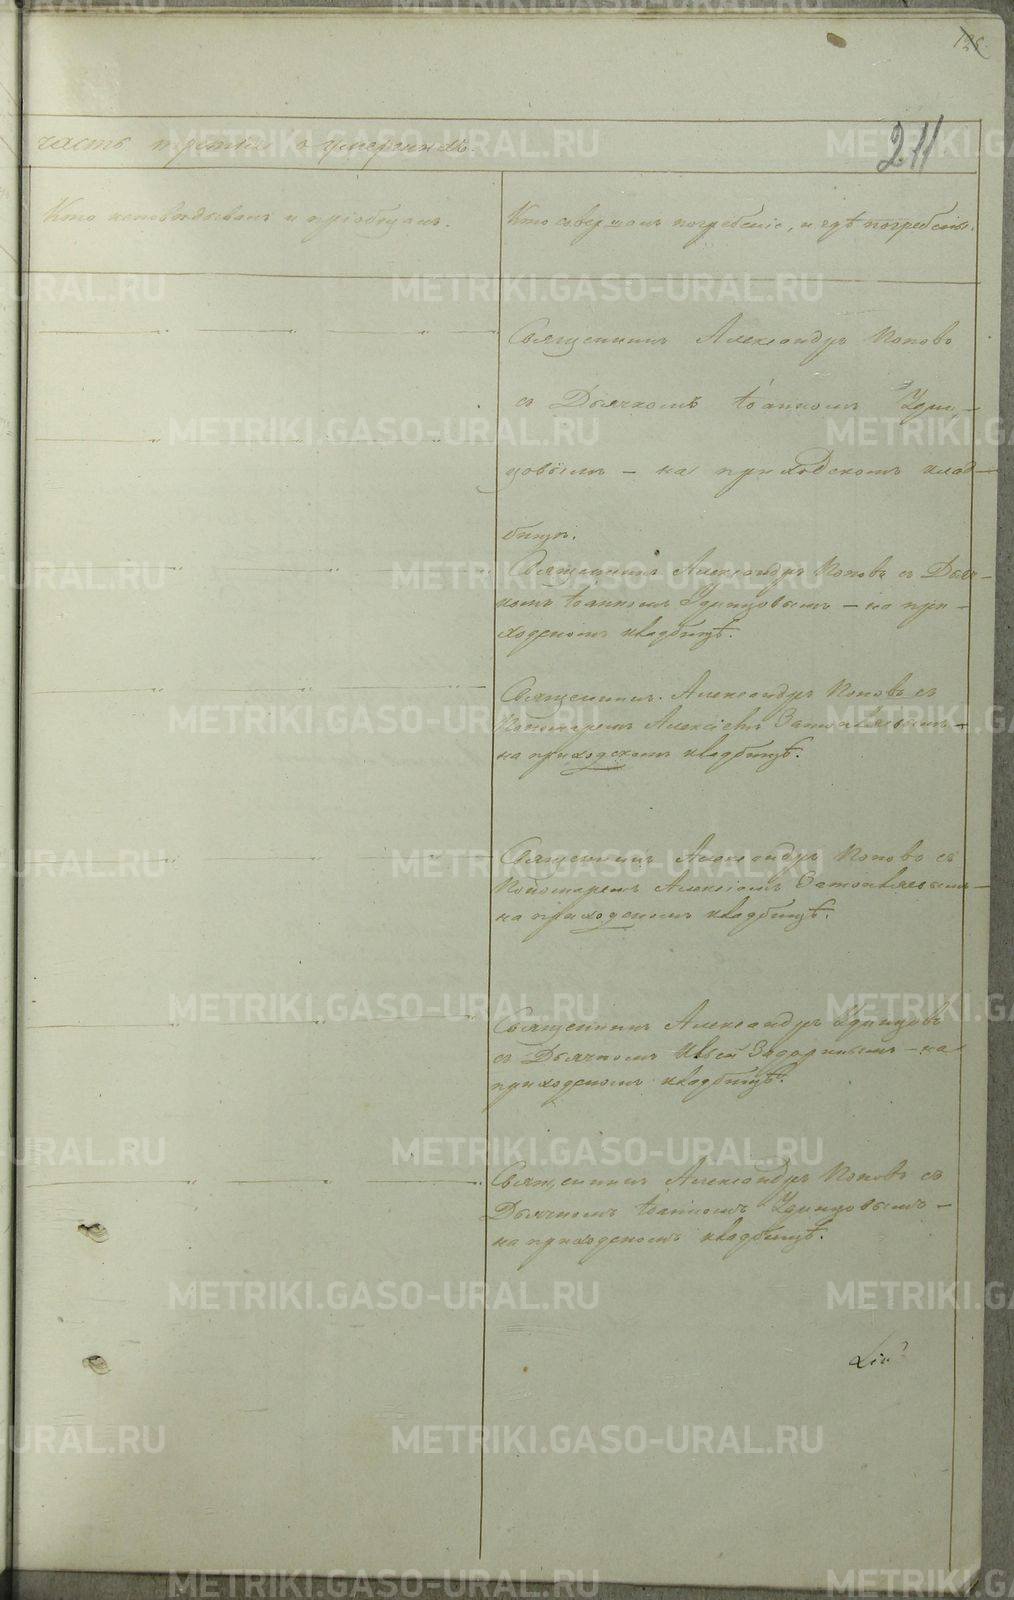 211
часть третія о умершихъ.
Кто исповѣдывалъ и пріобщалъ.
Кто совершалъ погребеніе, и гдѣ погребены.
Священникъ Александръ Поповъ
съ Дьячкомъ Іоанномъ Удин-
цовымъ – на приходскомъ клад-
бищѣ.
Священникъ Александръ Поповъ съ Дьяч-
комъ Іоанномъ Удинцовымъ – на при-
ходскомъ кладбищѣ.
Священникъ Александръ Поповъ съ
Пономаремъ Алексіемъ –
на приходскомъ кладбищѣ.
Священникъ Александръ Поповъ съ
Пономаремъ Алексіемъ –
на приходскомъ кладбищѣ.
Священникъ Александръ Удинцовъ
съ Дьячкомъ – на
приходскомъ кладбищѣ.
Священникъ Александръ Поповъ съ
Дьячкомъ Іоанномъ Удинцовымъ –
на приходскомъ кладбищѣ.
METRIKI.GASO-URAL.RU